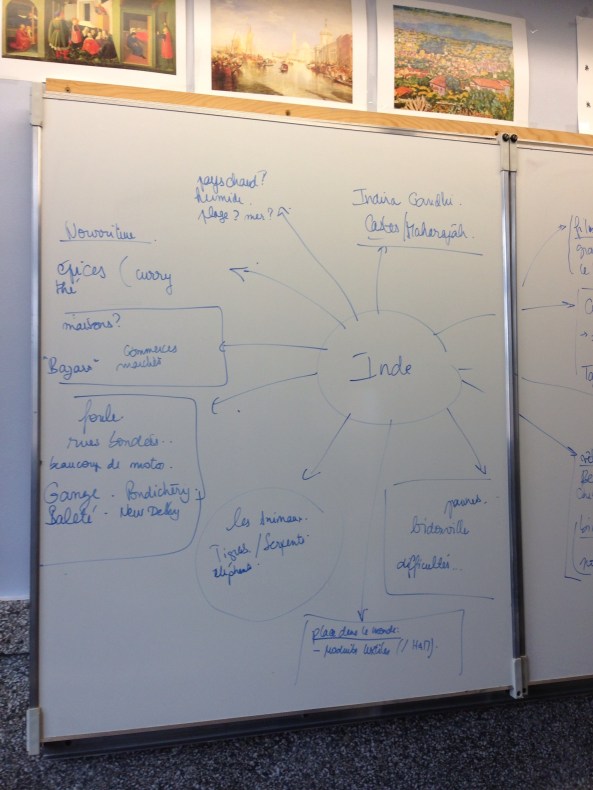 pays chaud?
humide.
plage? mer?
Indira Gandhi.
Castes/Maharajah.
Nourriture.
épices (curry
thé
maisons?
"Bazars" Commerces
marchés
Inde
foule.
rues bondées..
beaucoup de motos.
Gange. Pondichéry
Saleté. - New Delhy
les animaux.
Tigres/Serpents.
éléphant.
pauvres.
bidonville
difficultés...
place dans le monde.
- produits textiles (// H&M).